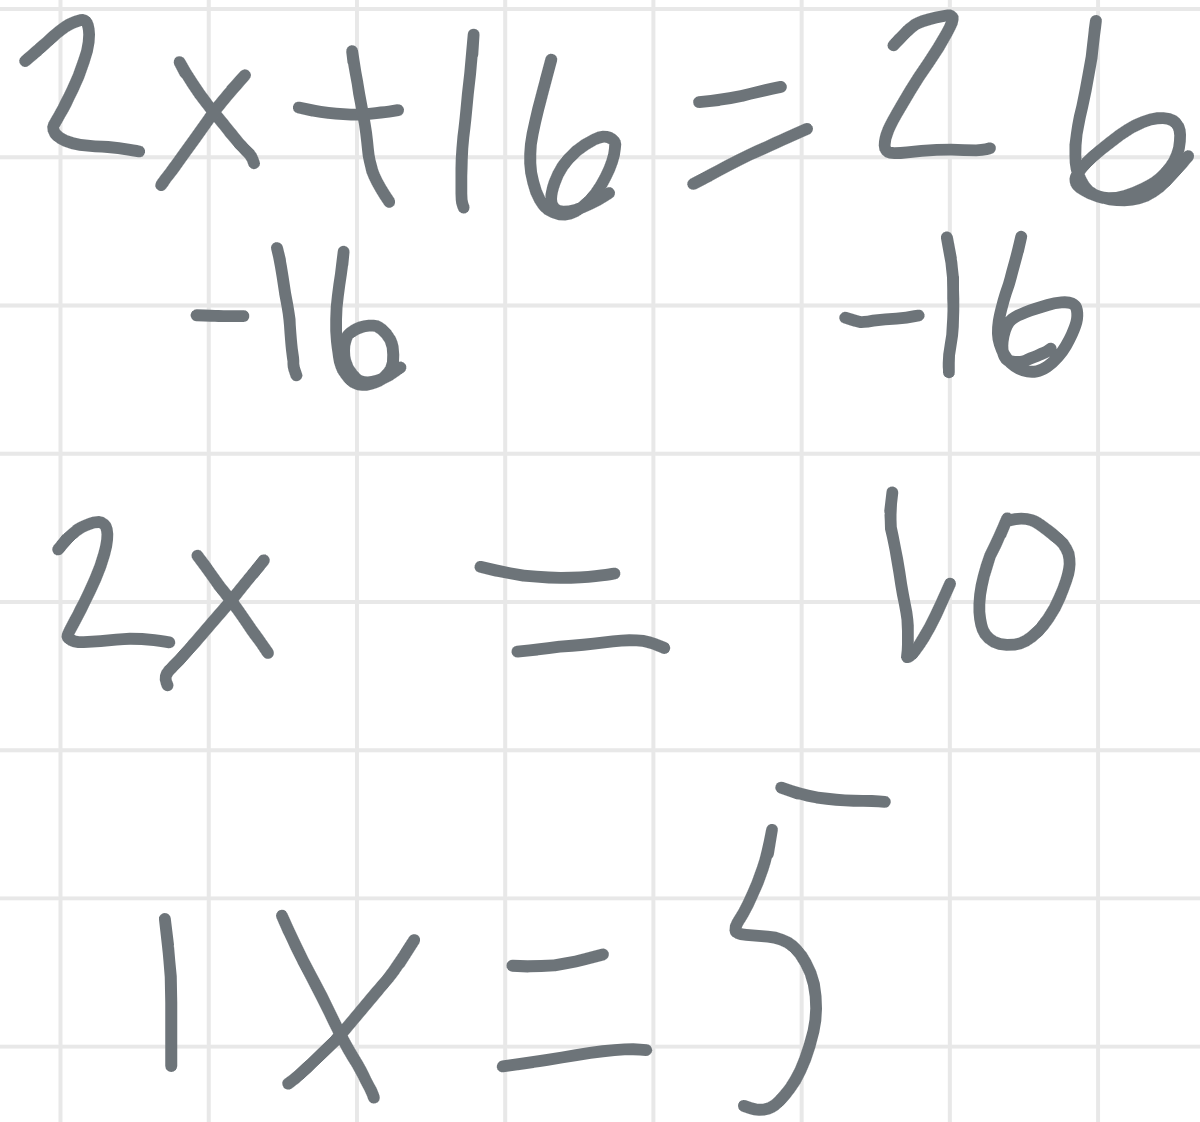 2x+16=26
-16 -16
2x = 10
1x=5